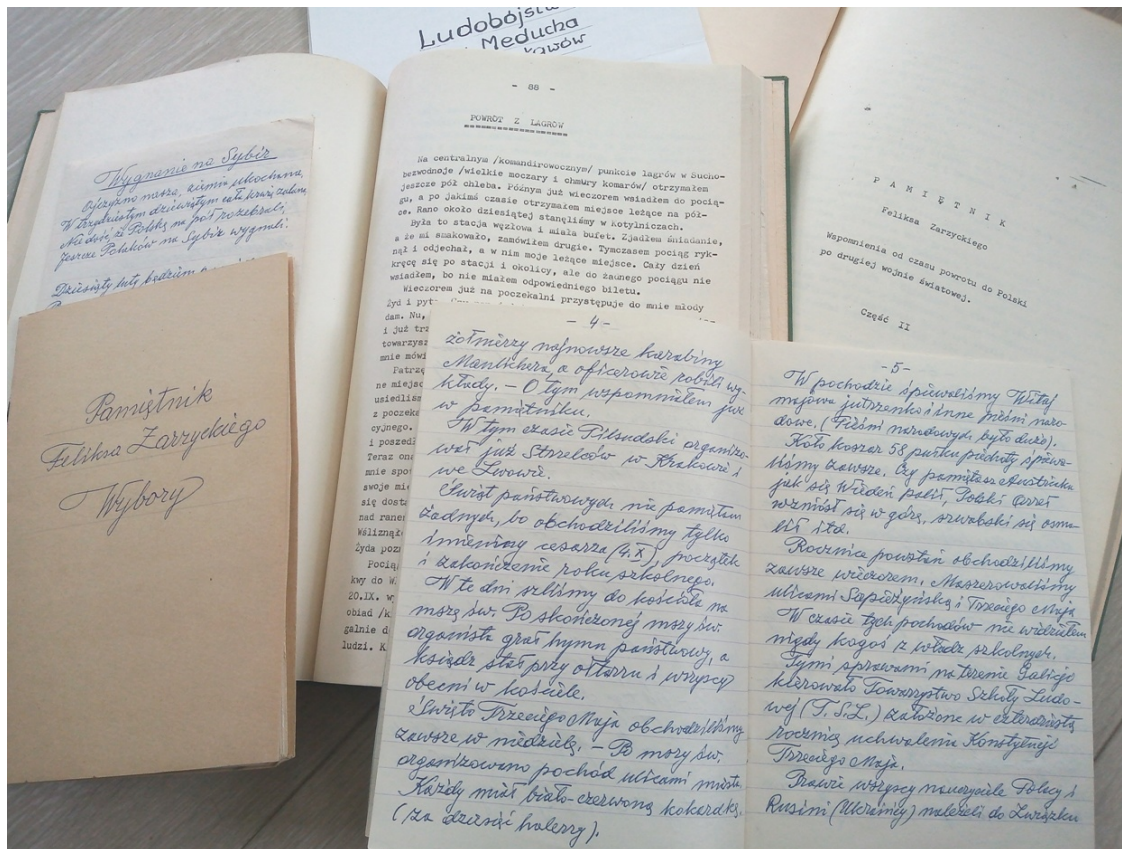 Ludobójstw
Meducha
kawów
Wygnanie na Sybir
Ojczyzno nasza, ziemio ukochana,
W trzydziestym dziewiątym cała krwią zalana,
Nie dość, że Polskę na pół rozebrali,
Jeszcze Polaków na Sybir wygnali.
Dziesiąty luty będziem
Pamiętnik
Feliksa Zarzyckiego
Wybory
- 88 -
POWRÓT Z ŁAGRÓW
Na centralnym /komandirowocznym/ punkcie łagrów w Sucho-
bezwodnoje /wielkie moczary i chmury komarów/ otrzymałem
jeszcze pół chleba. Późnym już wieczorem wsiadłem do pocią-
gu, a po jakimś czasie otrzymałem miejsce leżące na pół-
ce. Rano około dziesiątej stanęliśmy w Kotylniczach.
Była to stacja węzłowa i miała bufet. Zjadłem śniadanie,
a że mi smakowało, zamówiłem drugie. Tymczasem pociąg ryk-
nął i odjechał, a w nim moje leżące miejsce. Cały dzień
kręcę się po stacji i okolicy, ale do żadnego pociągu nie
wsiadłem, bo nie miałem odpowiedniego biletu.
Wieczorem już na poczekalni przystępuje do mnie młody
Żyd i pyta
dam. Nu,
i już trz
towarzysz
mnie mówi
Patrzę
ne miejsc
usiedliś
z poczeka
cyjnego.
i poszedł
Teraz ona
mnie spo
swoje mie
się dosta
nad ranem
Wśliznął
Żyda poz
Pociąg
kwy do W
20.IX. w
obiad /k
galnie d
ludzi. K
P A M I Ę T N I K
Feliksa Zarzyckiego
Wspomnienia od czasu powrotu do Polski
po drugiej wojnie światowej.
Część II
- 4 -
żołnierzy najnowsze karabiny
Manlichera, a oficerowie robili wy-
kłady. - O tym wspomniałem już
w pamiętniku.
W tym czasie Piłsudski organizo-
wał już Strzelców w Krakowie i
we Lwowie.
Świąt państwowych nie pamiętam
żadnych, bo obchodziliśmy tylko
imieniny cesarza (4.X), początek
i zakończenie roku szkolnego.
W te dni szliśmy do kościoła na
mszę św. Po skończonej mszy św.
organista grał hymn państwowy, a
ksiądz stał przy ołtarzu i wszyscy
obecni w kościele.
Święto Trzeciego Maja obchodziliśmy
zawsze w niedzielę. - Po mszy św.
organizowano pochód ulicami miasta.
Każdy miał biało-czerwoną kokardkę
(za dziesięć halerzy).
- 5 -
W pochodzie śpiewaliśmy Witaj
majowa jutrzenko i inne pieśni naro-
dowe. (Pieśni narodowych było dużo).
Koło koszar 58 pułku piechoty śpiewa-
liśmy zawsze, Czy pamiętasz Austriaku
jak się Wiedeń palił, Polski Orzeł
wzniósł się w górę, szwabski się osma-
lił itd.
Rocznice powstań obchodziliśmy
zawsze wieczorem. Maszerowaliśmy
ulicami Sapieżyńską i Trzeciego Maja
W czasie tych pochodów nie widziałem
nigdy kogoś z władz szkolnych.
Tymi sprawami na terenie Galicji
kierowało Towarzystwo Szkoły Ludo-
wej (T.S.L.) założone w czterdziestą
rocznicę uchwalenia Konstytucji
Trzeciego Maja.
Prawie wszyscy nauczyciele Polacy i
Rusini (Ukraińcy) należeli do Związku